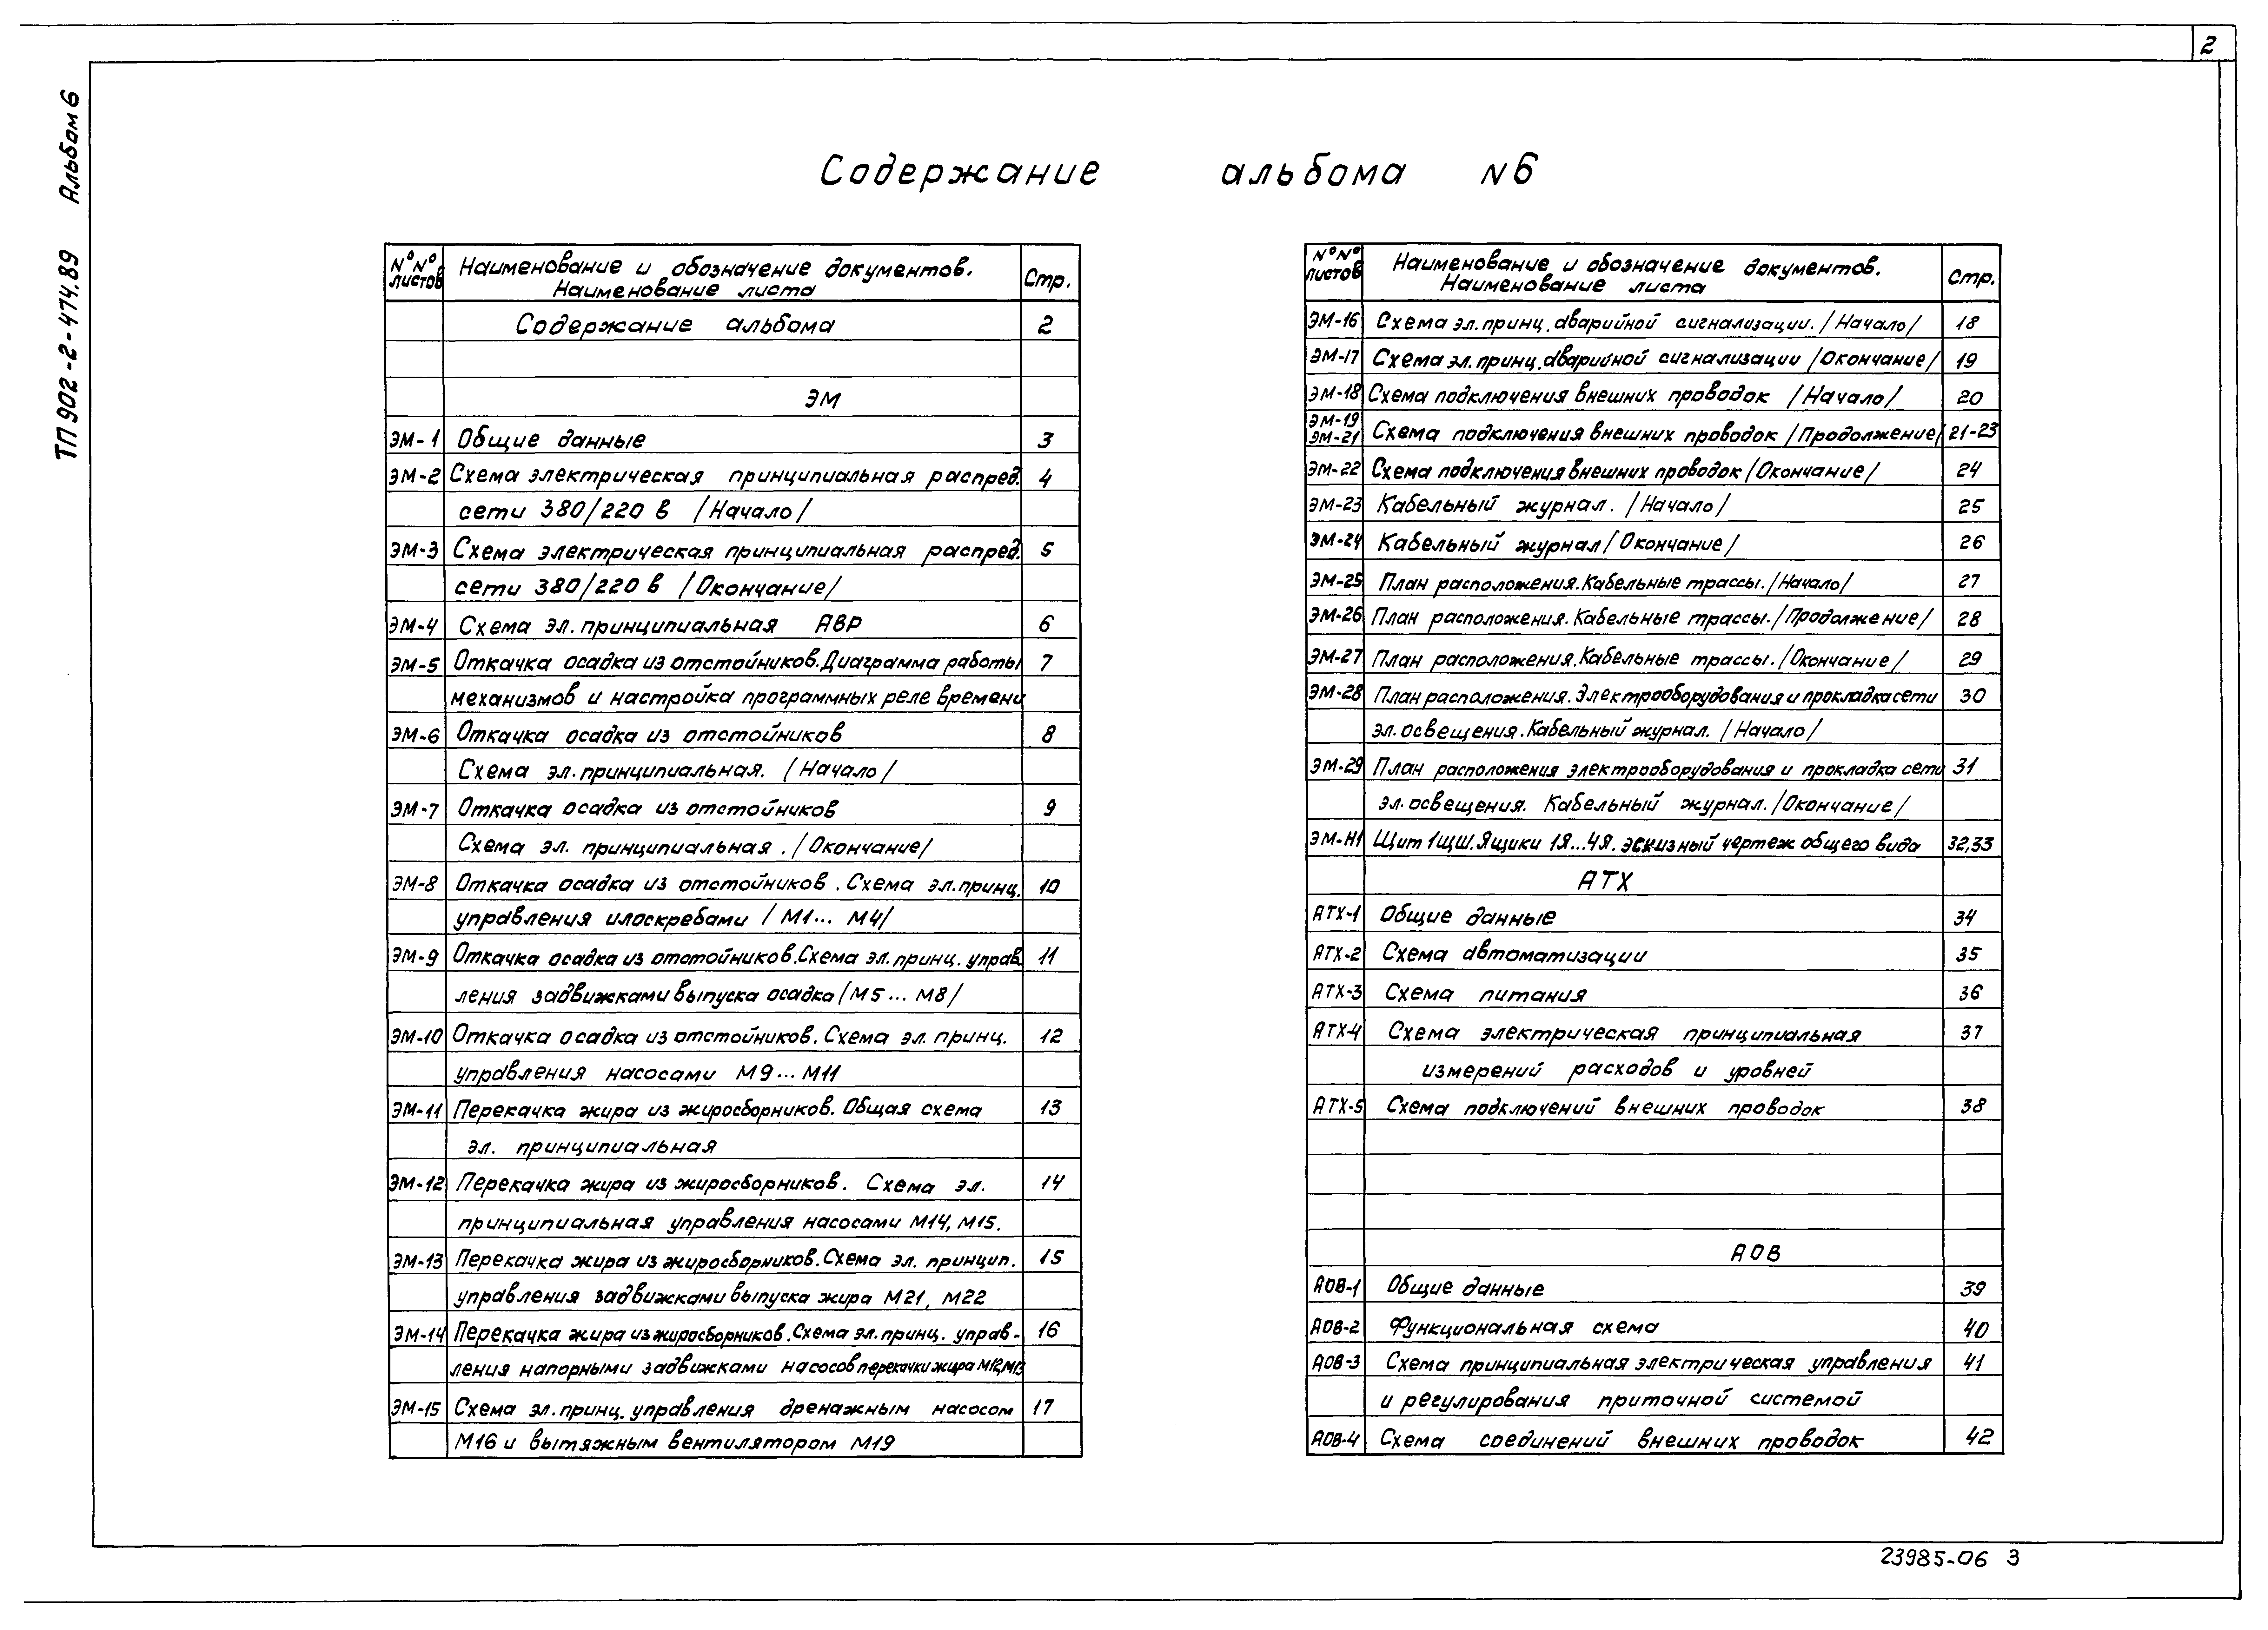 2
ТП 902-2-474.89 Альбом 6
Содержание альбома N6
N°N° листов Наименование и обозначение документов. Наименование листа Стр.
Содержание альбома 2
ЭМ
ЭМ-1 Общие данные 3
ЭМ-2 Схема электрическая принципиальная распред. 4
сети 380/220 в /Начало/
ЭМ-3 Схема электрическая принципиальная распред. 5
сети 380/220 в /Окончание/
ЭМ-4 Схема эл. принципиальная АВР 6
ЭМ-5 Откачка осадка из отстойников. Диаграмма работы 7
механизмов и настройка программных реле времени
ЭМ-6 Откачка осадка из отстойников 8
Схема эл. принципиальная. /Начало/
ЭМ-7 Откачка осадка из отстойников 9
Схема эл. принципиальная. /Окончание/
ЭМ-8 Откачка осадка из отстойников. Схема эл. принц. 10
управления илоскребами /М1... М4/
ЭМ-9 Откачка осадка из отстойников. Схема эл. принц. управ 11
ления задвижками выпуска осадка /М5... М8/
ЭМ-10 Откачка осадка из отстойников. Схема эл. принц. 12
управления насосами М9... М11
ЭМ-11 Перекачка жира из жиросборников. Общая схема 13
эл. принципиальная
ЭМ-12 Перекачка жира из жиросборников. Схема эл. 14
принципиальная управления насосами М14, М15.
ЭМ-13 Перекачка жира из жиросборников. Схема эл. принцип. 15
управления задвижками выпуска жира М21, М22
ЭМ-14 Перекачка жира из жиросборников. Схема эл. принц. управ- 16
ления напорными задвижками насосов перекачки жира М12, М13
ЭМ-15 Схема эл. принц. управления дренажным насосом 17
М16 и вытяжным вентилятором М19
N°N° листов Наименование и обозначение документов. Наименование листа Стр.
ЭМ-16 Схема эл. принц. аварийной сигнализации. /Начало/ 18
ЭМ-17 Схема эл. принц. аварийной сигнализации /Окончание/ 19
ЭМ-18 Схема подключения внешних проводок /Начало/ 20
ЭМ-19 ЭМ-21 Схема подключения внешних проводок /Продолжение/ 21-23
ЭМ-22 Схема подключения внешних проводок /Окончание/ 24
ЭМ-23 Кабельный журнал. /Начало/ 25
ЭМ-24 Кабельный журнал /Окончание/ 26
ЭМ-25 План расположения. Кабельные трассы. /Начало/ 27
ЭМ-26 План расположения. Кабельные трассы. /Продолжение/ 28
ЭМ-27 План расположения. Кабельные трассы. /Окончание/ 29
ЭМ-28 План расположения. Электрооборудования и прокладка сети 30
эл. освещения. Кабельный журнал. /Начало/
ЭМ-29 План расположения электрооборудования и прокладка сети 31
эл. освещения. Кабельный журнал. /Окончание/
ЭМ-Н1 Щит 1ЩШ. Ящики 1Я...4Я. эскизный чертеж общего вида 32,33
АТХ
АТХ-1 Общие данные 34
АТХ-2 Схема автоматизации 35
АТХ-3 Схема питания 36
АТХ-4 Схема электрическая принципиальная 37
измерений расходов и уровней
АТХ-5 Схема подключений внешних проводок 38
АОВ
АОВ-1 Общие данные 39
АОВ-2 Функциональная схема 40
АОВ-3 Схема принципиальная электрическая управления 41
и регулирования приточной системой
АОВ-4 Схема соединений внешних проводок 42
23985-06 3